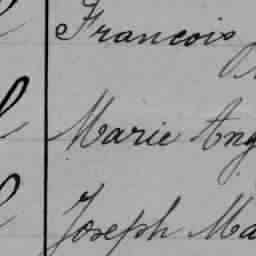 Francois
Marie Ang
Joseph Ma